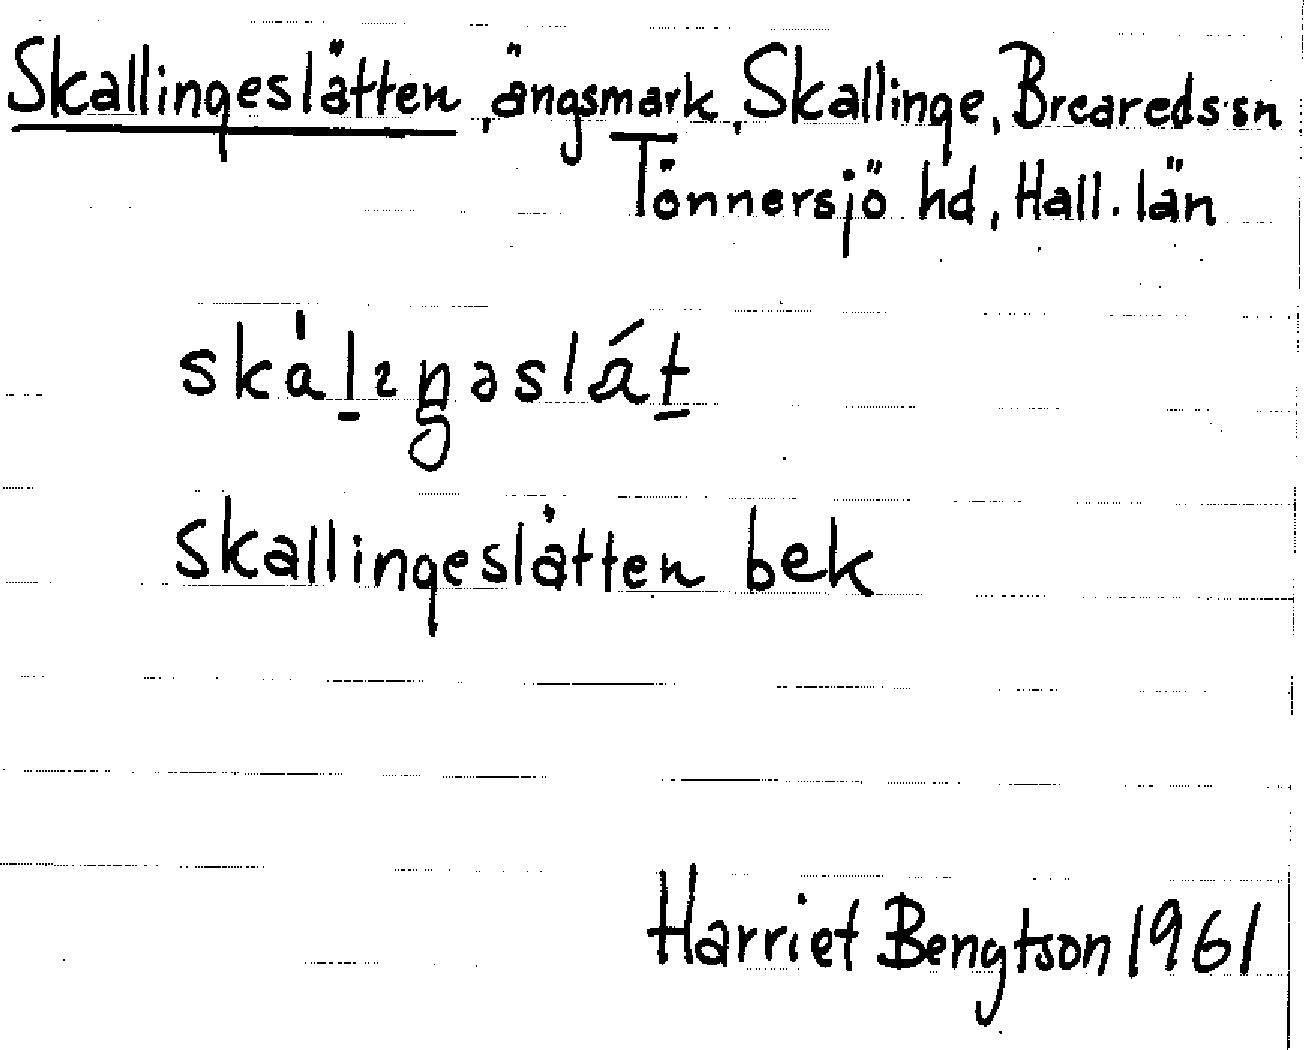 Skallingeslåtten, ängsmark, Skallinge, Breareds sn
Tönnersjö hd, Hall. län
skallingeslåtten bek
Harriet Bengtson 1961